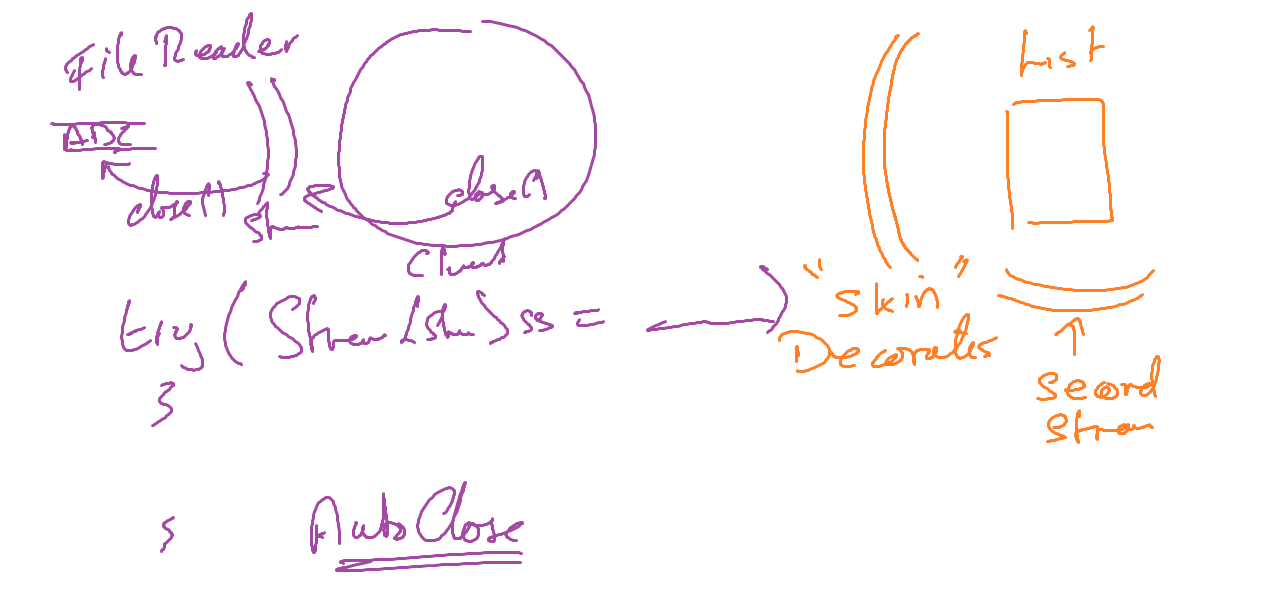 File Reader
close()
close()
Client
try (Stream<Str>ss =
}
AutoClose
List
"Skin"
Decorates
Second
Stream